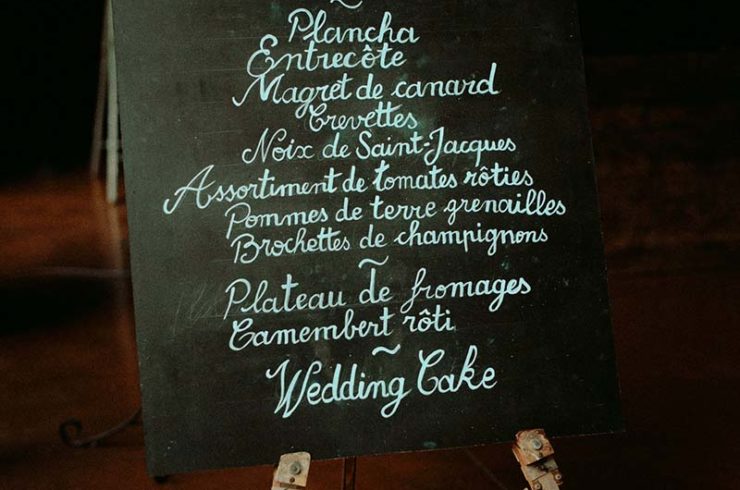 ~
Plancha
Entrecôte
Magret de canard
Crevettes
Noix de Saint-Jacques
Assortiment de tomates rôties
Pommes de terre grenailles
Brochettes de champignons
~
Plateau de fromages
Camembert rôti
~
Wedding Cake